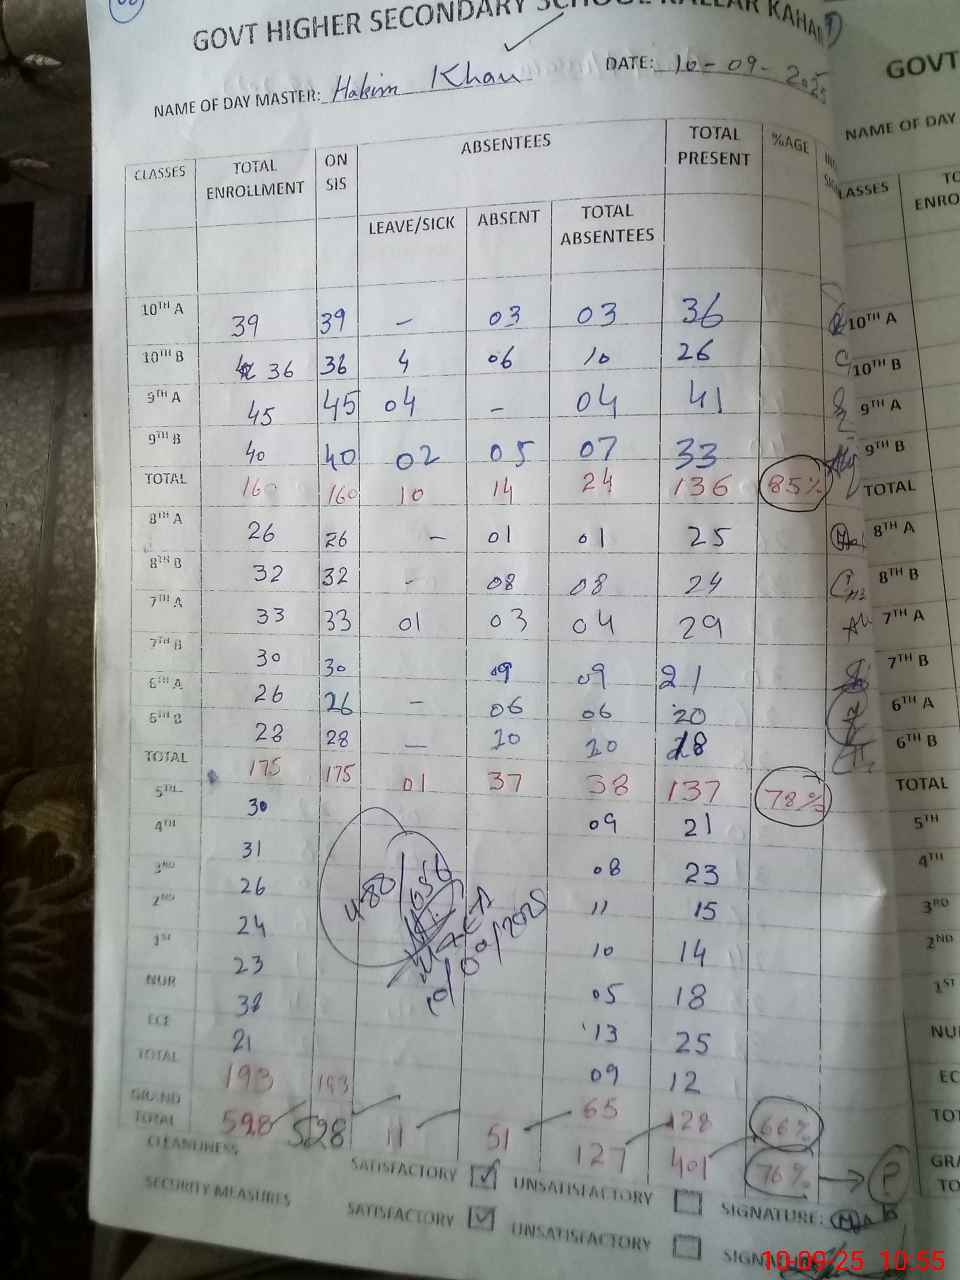 GOVT HIGHER SECONDARY SCHOOL KALLAR KAHAR
NAME OF DAY MASTER: Hakim Khan DATE: 10-09-2025
CLASSES TOTAL ENROLLMENT ON SIS ABSENTEES TOTAL PRESENT %AGE
LEAVE/SICK ABSENT TOTAL ABSENTEES
10TH A 39 39 - 03 03 36
10TH B 36 36 4 06 10 26
9TH A 45 45 04 - 04 41
9TH B 40 40 02 05 07 33
TOTAL 160 160 10 14 24 136 85%
8TH A 26 26 - 01 01 25
8TH B 32 32 - 08 08 24
7TH A 33 33 01 03 04 29
7TH B 30 30 09 09 21
6TH A 26 26 - 06 06 20
6TH B 28 28 - 10 10 18
TOTAL 175 175 01 37 38 137 78%
5TH 30 09 21
4TH 31 08 23
3RD 26 11 15
2ND 24 10 14
1ST 23 05 18
NUR 38 13 25
ECE 21 09 12
TOTAL 193 193 65 128 66%
GRAND TOTAL 528 528 11 51 127 401 76% ?
480
10/09/2025
CLEANLINESS SATISFACTORY UNSATISFACTORY SIGNATURE:
SECURITY MEASURES SATISFACTORY UNSATISFACTORY
GOVT
NAME OF DAY
CLASSES
ENRO
10TH A
10TH B
9TH A
9TH B
TOTAL
8TH A
8TH B
7TH A
7TH B
6TH A
6TH B
TOTAL
5TH
4TH
3RD
2ND
1ST
NU
EC
TO
GRA
TO
10-09-25 10:55